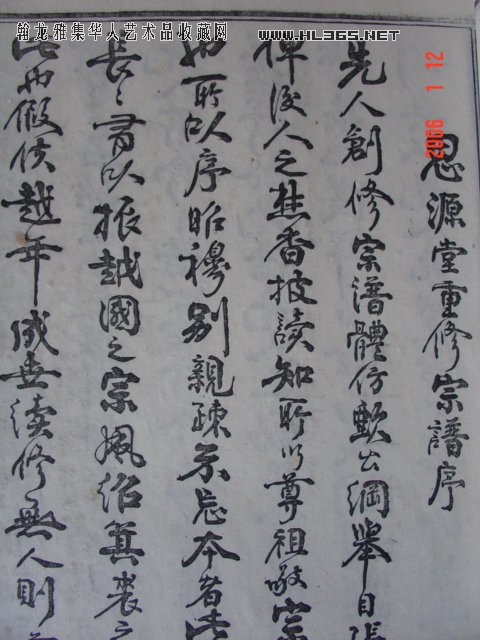 翰龙雅集华人艺术品收藏网
www.HL365.net
2006 1 12
思源堂重修宗譜序
先人創修宗譜體仿歐公綱舉目張
俾後人之焚香披讀知所以尊祖敬宗
也所以序昭穆别親疎示忘本者此
長之
以振越國之宗風紹箕裘之
此也假使越年
無续修無人則